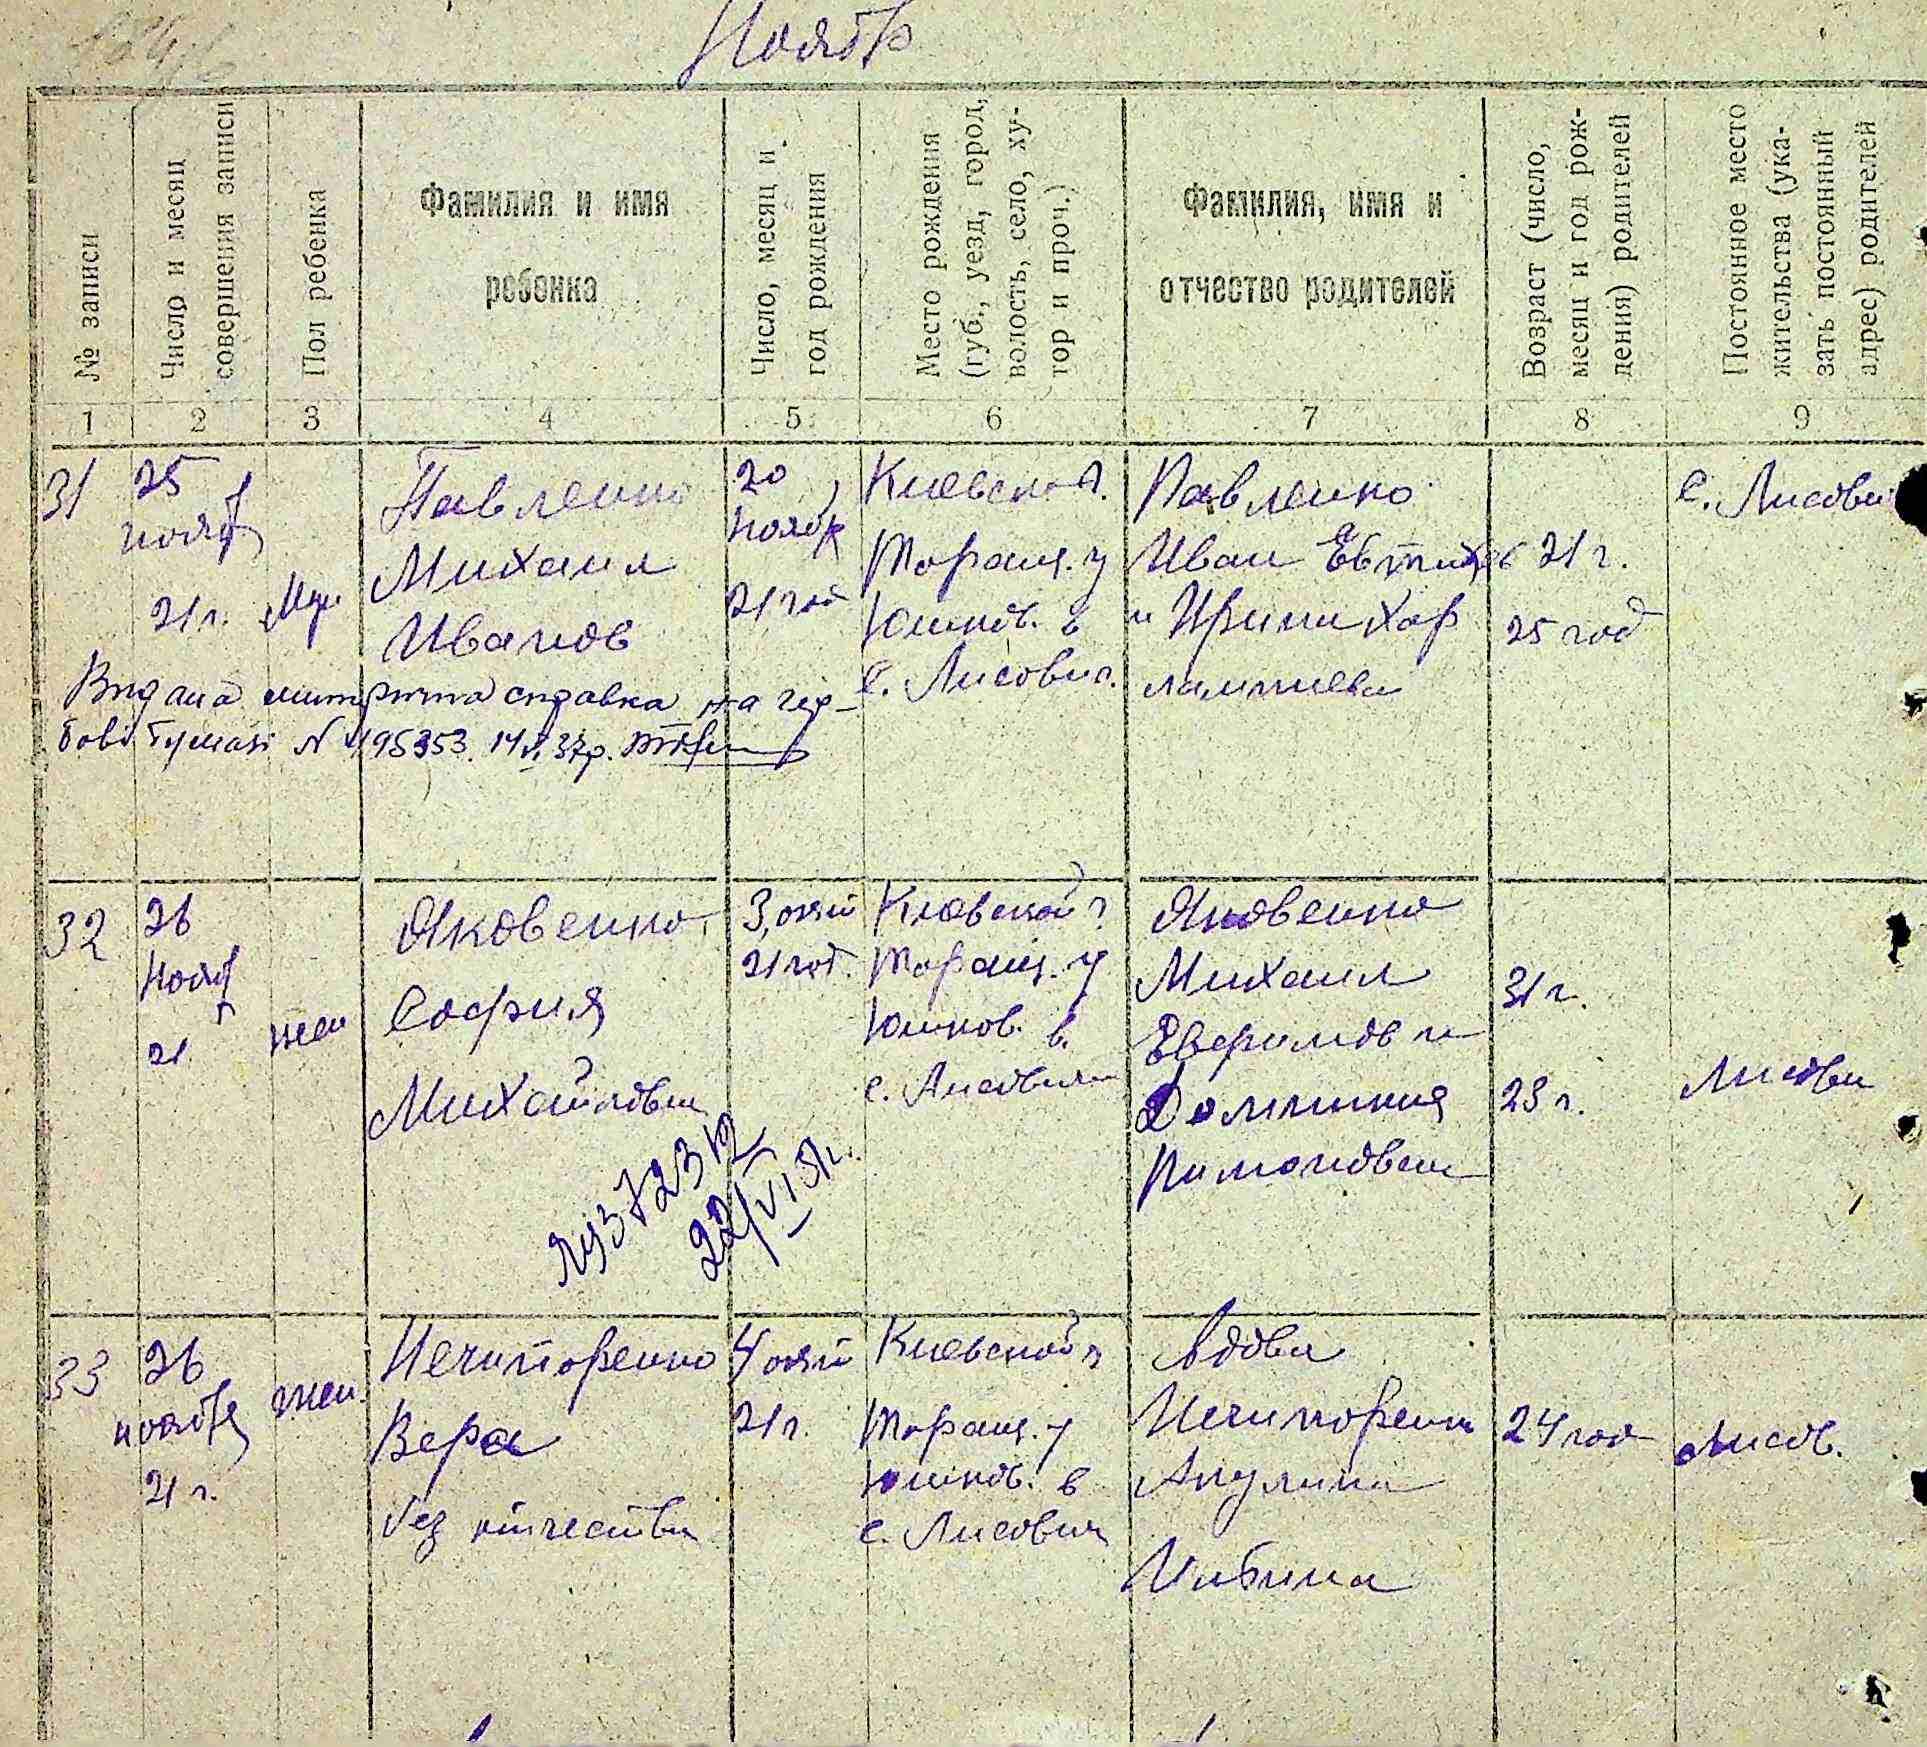 Ноябр
№ записи
Число и месяц
совершения записи
Пол ребенка
Фамилия и имя
ребенка
Число, месяц и
год рождения
Место рождения
(губ., уезд, город,
волость, село, ху-
тор и проч.)
Фамилия, имя и
отчество родителей
Возраст (число,
месяц и год рож-
дения) родителей
Постоянное место
жительства (ука-
зать постоянный
адрес) родителей
1 2 3 4 5 6 7 8 9
31
25
нояб
21 г.
Муж
Павленко
Михаил
Иванов
20
нояб
21 год
Киевской г.
Таращ. у
Юшков. в
с. Лисович.
Павленко
Иван
и Ирина Хар
лампиева
21 г.
25 год
с. Лисови
Видана метрична справка на гер-
бові бумазі № 495353. 14 37р.
32
26
Нояб
21
жен
Яковенко
София
Михайловна
3, 
21 год.
Киевской г
Таращ. у
Юшков. в.
с. Лисович
Яковенко
Михаил
Евфимов и
Домникия
Пимоновна
31 г.
23 г.
Лисови
372312
22/VI 51г.
33
26
ноября
21 г.
жен.
Нечипоренко
Вера
без отчества
4
21 г.
Киевской г
Таращ. у
Юшков. в
с. Лисович
Вдова
Нечипоренко
Акулина
Ильина
24 год
Лисов.